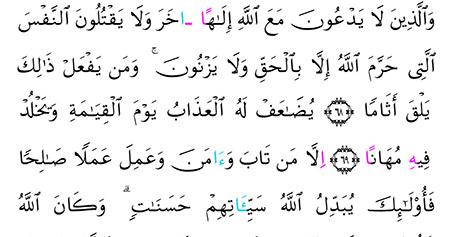 وَالَّذِينَ لَا يَدْعُونَ مَعَ اللَّهِ إِلَٰهًا ـاخَرَ وَلَا يَقْتُلُونَ النَّفْسَ
الَّتِى حَرَّمَ اللَّهُ إِلَّا بِالْحَقِّ وَلَا يَزْنُونَ ۚ وَمَن يَفْعَلْ ذَٰلِكَ
يَلْقَ أَثَامًا ﴿٦٨﴾ يُضَٰعَفْ لَهُ الْعَذَابُ يَوْمَ الْقِيَٰمَةِ وَيَخْلُدْ
فِيهِ مُهَانًا ﴿٦٩﴾ اِلَّا مَن تَابَ وَءَامَنَ وَعَمِلَ عَمَلًا صَٰلِحًا
فَأُوْلَٰئِكَ يُبَدِّلُ اللَّهُ سَيِّـَٔاتِهِمْ حَسَنَٰتٍ ۗ وَكَانَ اللَّهُ